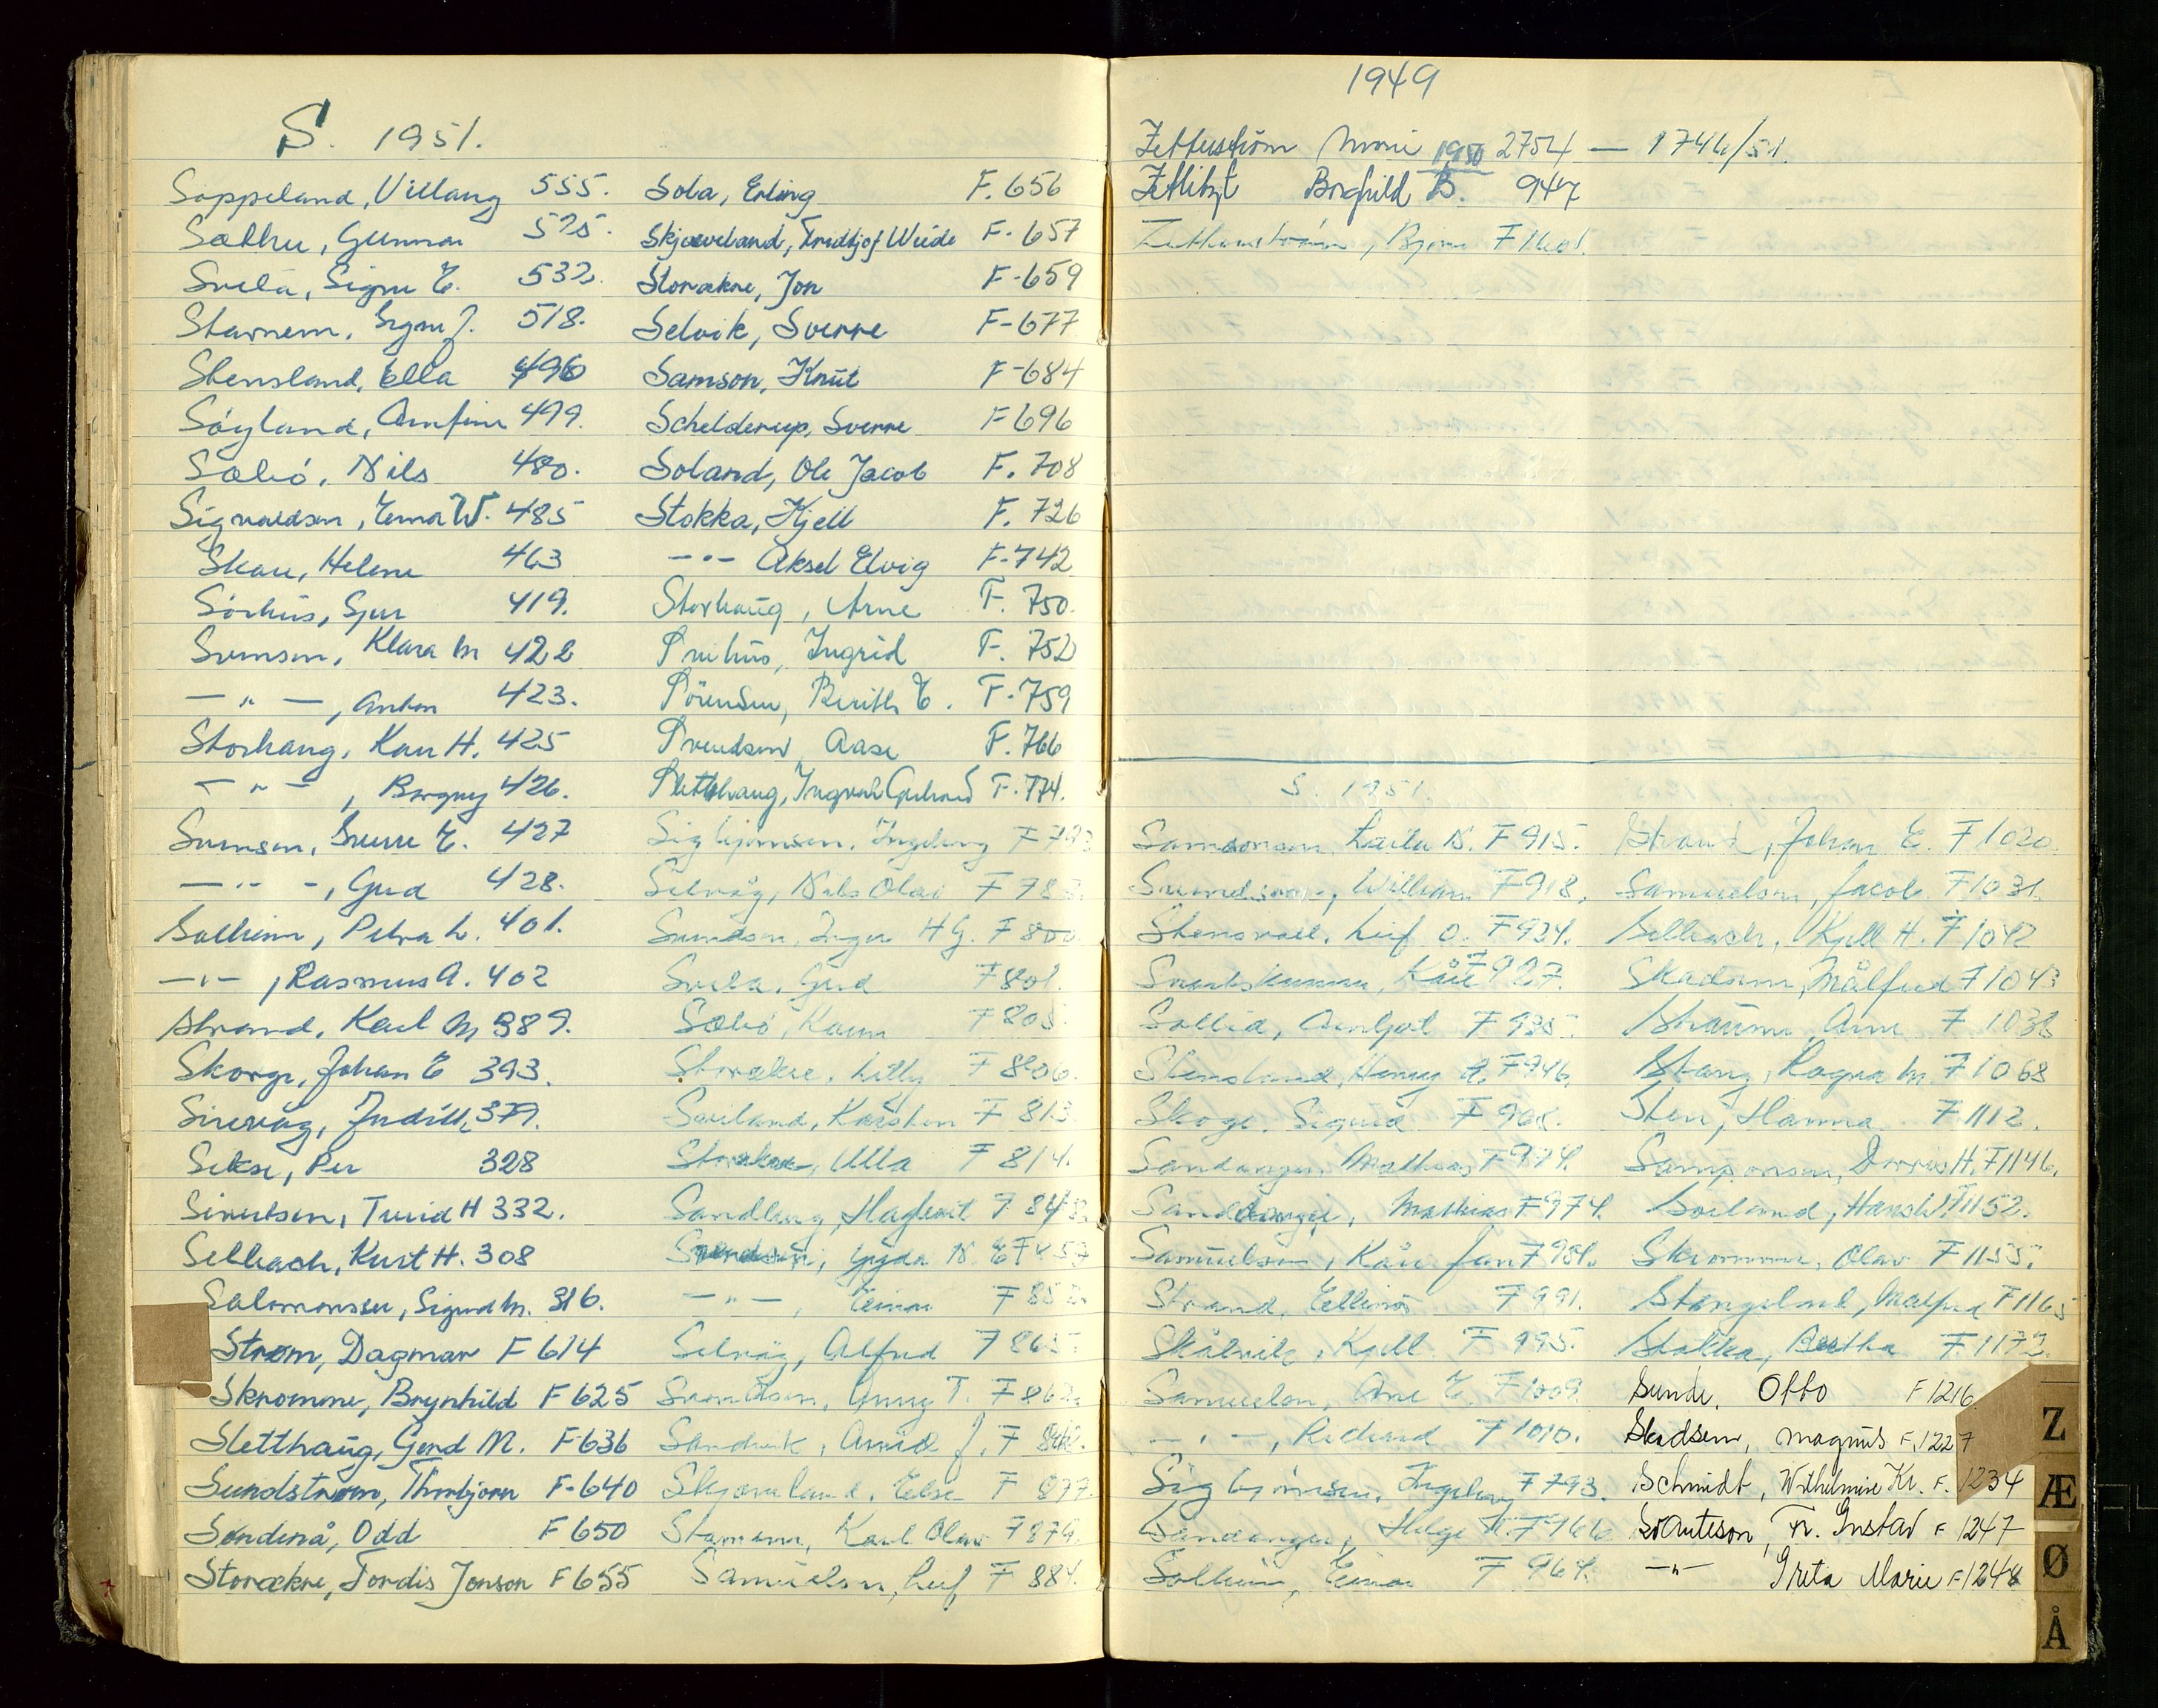 S. 1951.
Soppeland, Villang 555.
Sæthre, Gunnar 575.
Svela, Signe E. 532.
Stavnem, Sigm J. 518.
Stensland, Ella 496
Søyland, Arnfinn 499.
Sæbø, Nils 480.
Sigvaldsen, Erna W. 485
Skare, Helene 463
Sørhus, Sjur 419.
Svensen, Klara M 422
— " —, Anton 423.
Storhaug, Kari H. 425
— " —, Borgny 426.
Svensen, Sverre E. 427
— " —, Gerd 428.
Solheim, Petra L. 401.
— " —, Rasmus A. 402
Strand, Karl M 389.
Skorge, Johan E 393.
Sirevåg, Judith, 379.
Sekse, Per 328
Sivertsen, Turid H 332.
Selbach, Kurt H. 308
Salomonsen, Sigurd M. 316.
Strøm, Dagmar F 614
Skromme, Brynhild F 625
Sletthaug, Gerd M. F-636
Sundstrøm, Thorbjørn F-640
Søndenå, Odd F 650
Storækre, Tordis Jonson F 655
Sola, Erling F. 656
Skjæveland, Fridtjof Weide F-657
Storækre, Jon F-659
Selvik, Sverre F-677
Samson, Knut F-684
Schelderup, Sverre F 696
Soland, Ole Jacob F. 708
Stokka, Kjell F. 726
— " — Aksel Elvig F-742
Storhaug, Arne F. 750.
Ingrid F. 752
Sörensen, Berith E. F. 759
Svendsen, Aase F. 766
Sletthaug, Ingvald Gerhard F. 774.
Sigbjørnsen, Ingeborg F 793
Selvåg, Nils Olav F 78
Svendsen, Inger H G. F 800
Svela, Gerd F 801.
Sæbø, Karen F 805.
Storækre, Lilly F 806.
Sviland, Karsten F 813
Storækre, Ulla F 814.
Sandberg, F 848.
Svendsen, Gyda N. E F 853
— " —, Einar F 852.
Selvåg, Alfred F 865.
Svendsen, Anny T. F 862.
Sandvik, Arvid J. F
Skjæveland, Else F 877
Stamnem, Karl Olav F 874.
Samuelsen, Leif F 884.
1949
Zetterström Marie 1950 2754 — 1746/51.
Zetlitz Borghild B. 947
Zetterström, Bjørn F 1601.
S. 1951.
Samsonsen, Laila N. F 915.
Svendsen, William F 918.
Leif O. F 924.
Kåre F 927.
Sollid, Arnljot F 935.
Stensland, Henry A. F 946.
Skoge, Sigurd F 968.
Sandanger, Mathias F 974.
Sandanger, Mathias F 974.
Samuelsen, Kåre Jan F 981.
Strand, Ellinor F 991.
Skålvik, Kjell F 995.
Samuelsen, Arne E. F 1009.
— " —, Richard F 1010.
Sigbjørnsen, Ingeborg F 793.
Sandanger, Helge N. F 966
Solheim, Einar F 964.
Strand, Johan E. F 1020.
Samuelsen, Jacob F 1031.
Selbach, Kjell H. F 1042
Skadsem, Målfrid F 1043
Straume, Arne F 1038
Stang, Ragna M. F 1068
Sten, Hanna F 1112.
Samsonsen, Dorris H. F 1146.
Sørland, Hans W. F 1152.
Skromme, Olav F 1155.
Stangeland, Målfrid F 1165
Stokka, Bertha F 1172.
Sunde, Otto F 1216
Skadsem, Magnus F. 1227
Schmidt, Wilhelmine Kr. F. 1234
Svanteson, Fr. Gustav F 1247
— " — Greta Marie F 1248
Z
Æ
Ø
Å